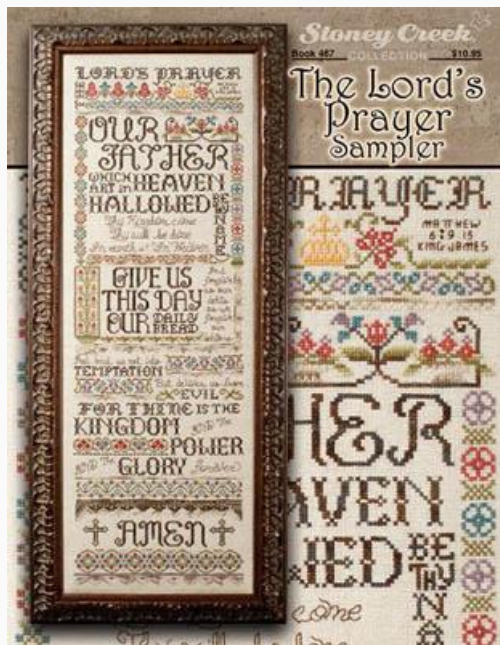 Stoney Creek
Book 467 COLLECTION $10.95
The Lord's
Prayer
Sampler
LORD'S PRAYER
OUR
FATHER
WHICH
ART in HEAVEN
HALLOWED BE THY NAME
Thy Kingdom come
Thy will be done
In earth as in Heaven
GIVE US
THIS DAY
OUR DAILY
BREAD
And lead us not into
TEMPTATION
But deliver us from
EVIL
FOR THINE IS THE
KINGDOM AND The
POWER
AND The GLORY Forever
AMEN
PRAYER
MATTHEW
6:9 15
KING JAMES
HER
AVEN
WED BE
THY
NA
come